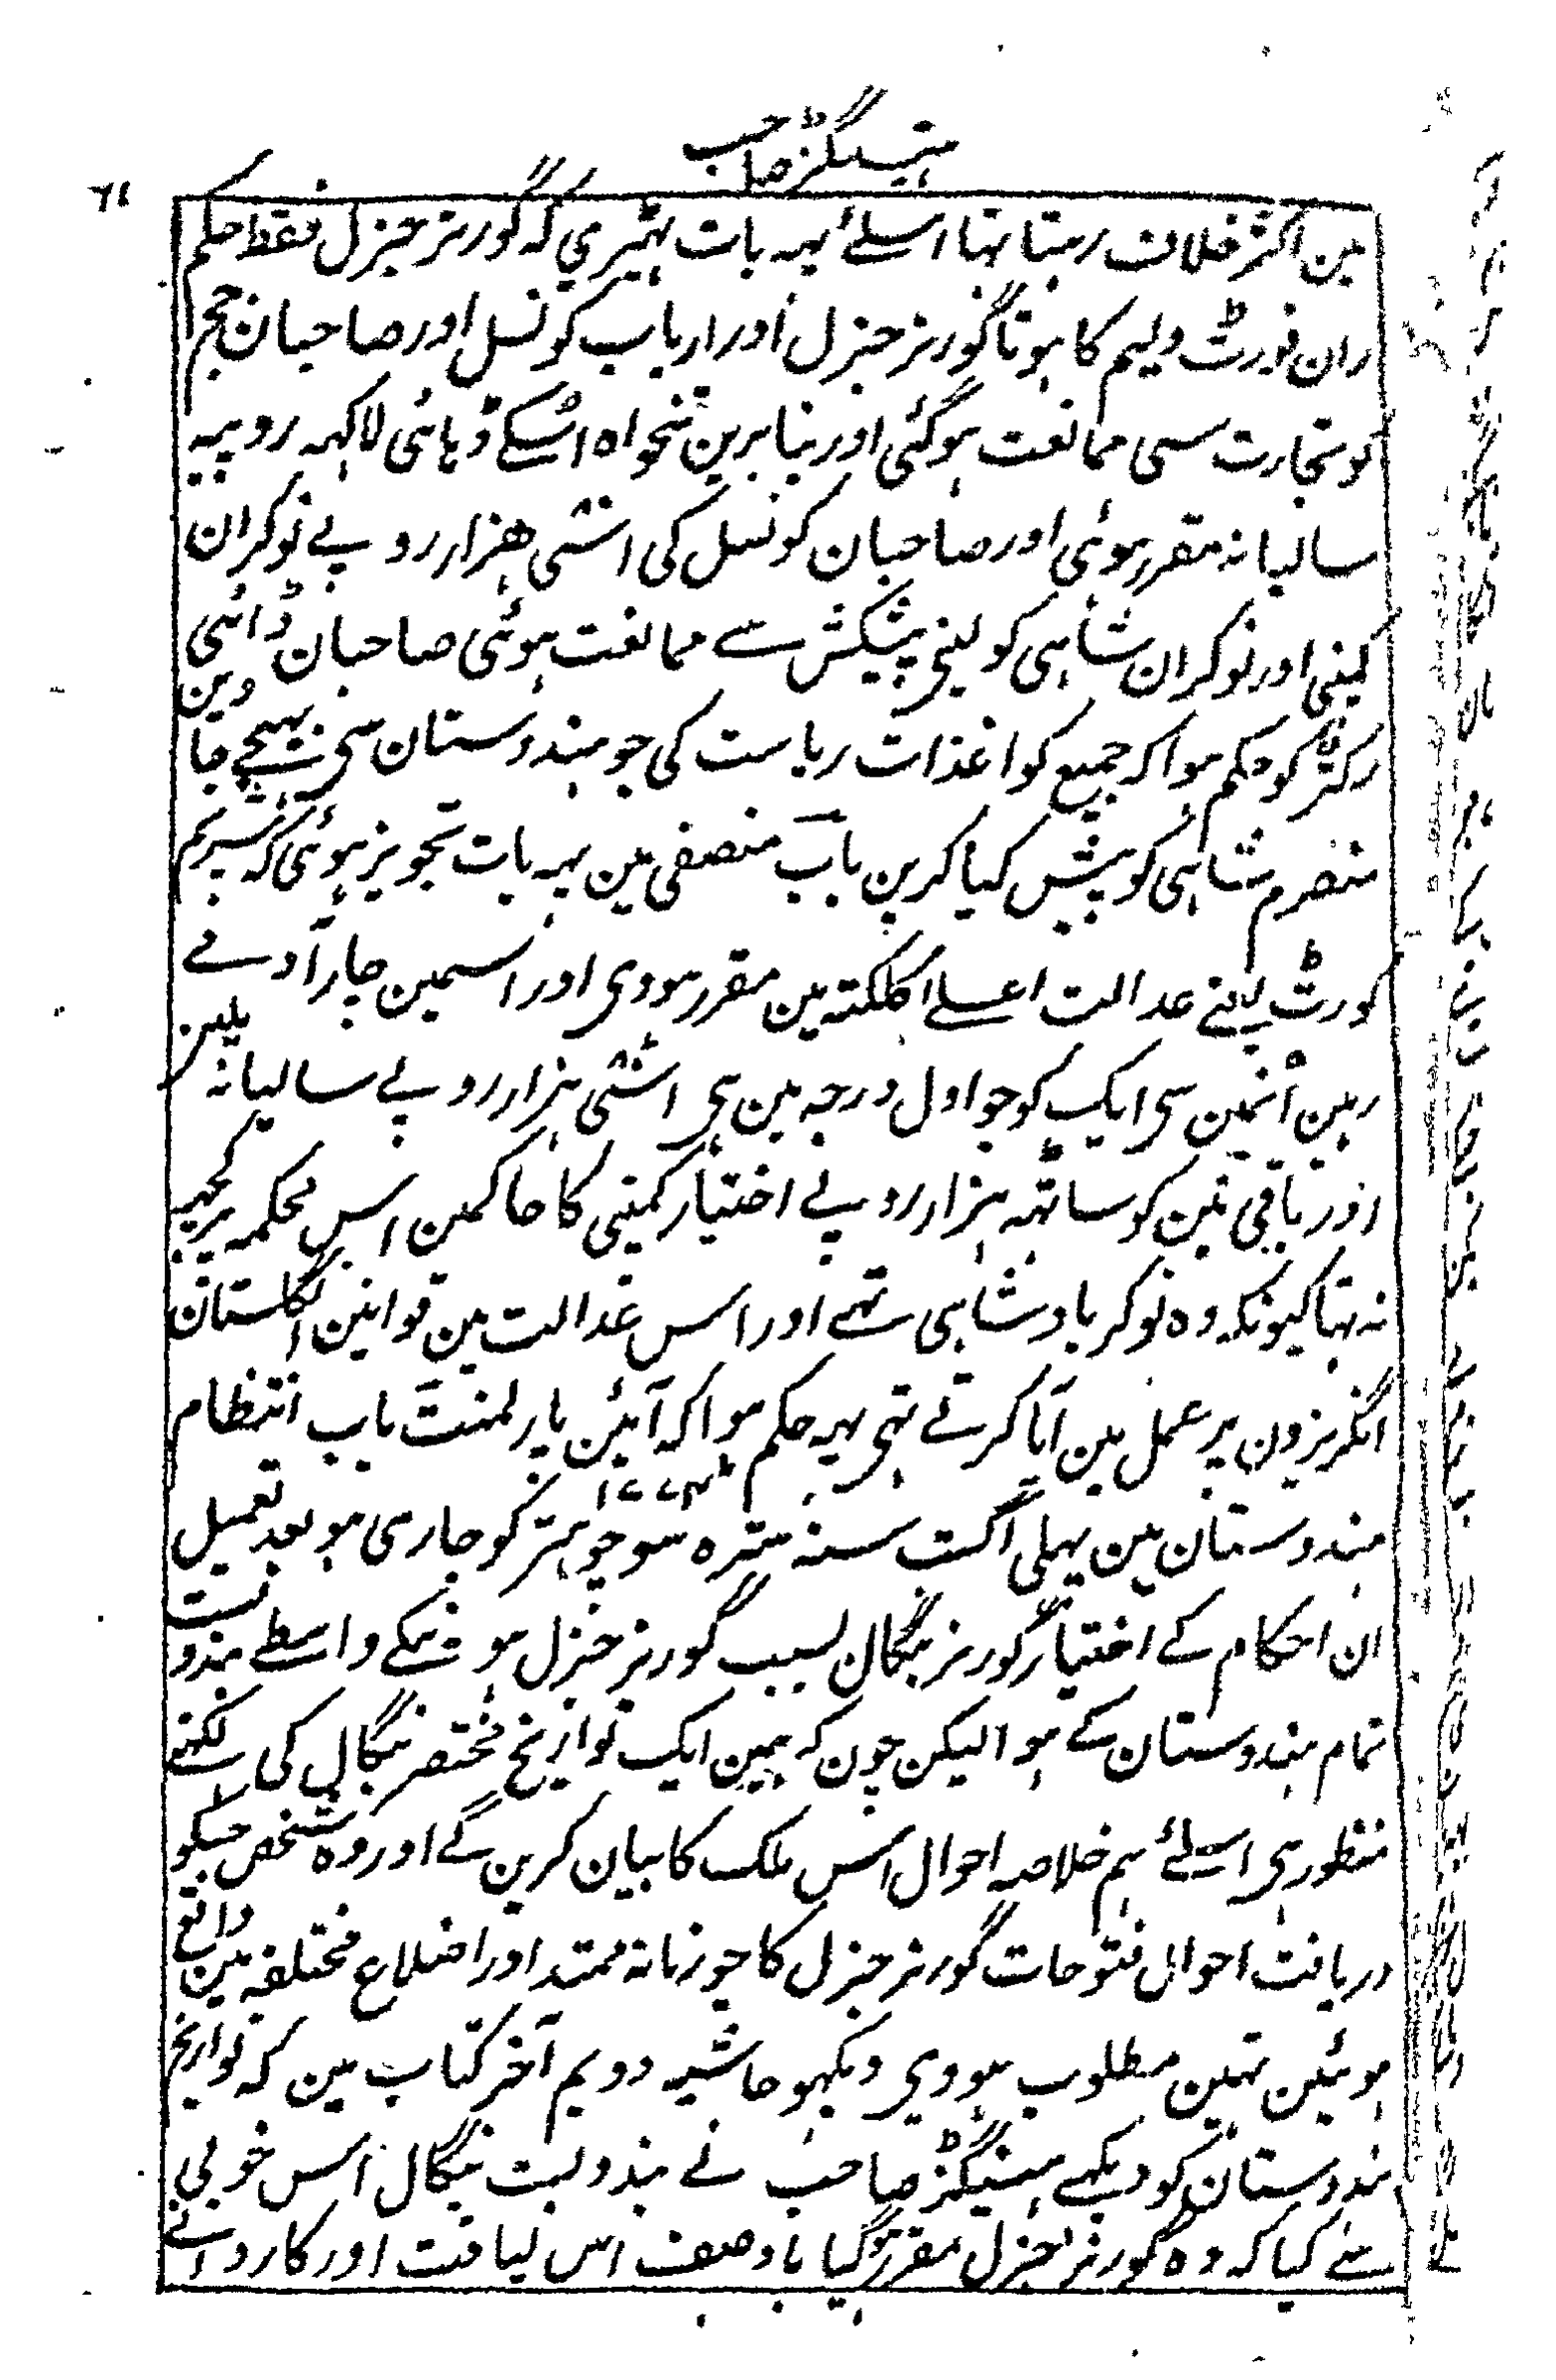 ہیسٹنگز صاحب
۷۱
مین اکثر خلاف رہتا تہا اسلئے یہہ بات ٹہیری کہ گورنر جنرل فقط حکم
ران فورٹ ولیم کا ہوتا گورنر جنرل اور ارباب کونسل اور صاحبان جج
کو تجارت سی ممانعت ہوگئی اور بنا برین تنخواہ اسکے ڈہائی لاکہہ روپیہ
سالیانہ مقرر ہوئی اور صاحبان کونسل کی اسّی ہزار روپے نوکران
کمپنی اور نوکران شاہی کو لینی پیشکش سے ممانعت ہوئی صاحبان ڈائی
رکٹر کو حکم ہوا کہ جمیع کواغذات ریاست کی جو ہندوستان سی بہیجے جاوین
منصرم شاہی کو پیش کیا کرین باب منصفی مین یہہ بات تجویز ہوئی کہ سپریم
کورٹ یعنے عدالت اعلے اکلکتہ مین مقرر ہووی اور اسمین چار آدمے
رہین انمین سی ایک کو جو اول درجہ مین ہی اسّی ہزار روپے سالیانہ ملین
اور باقی تین کو ساٹہہ ہزار روپے اختیار کمپنی کا حاکمین اس محکمہ پر کچہہ
نہ تہا کیونکہ وہ نوکر بادشاہی تہے اور اس عدالت مین قوانین انگلستان
انگریزون پر عمل مین آیا کرتے تہی یہہ حکم ہوا کہ آئین پارلمنت باب انتظام
ہندوستان مین پہلی اگست سنہ سترہ سو چوہتر ۱۷۷۴ کو جاری ہو بعد تعمیل
ان احکام کے اختیار گورنر بنگال بسبب گورنر جنرل ہونیکے واسطے بندوبست
تمام ہندوستان کے ہوا لیکن چون کہ ہمین ایک تواریخ مختصر بنگالی کی لکہنے
منظور ہی اسلئے ہم خلاصہ احوال اس ملک کا بیان کرین گے اور وہ شخص جسکو
دریافت احوال فتوحات گورنر جنرل کا جو زمانہ ممتد اور اضلاع مختلفہ مین واقع
ہوئین تہین مطلوب ہووی دیکہو حاشیہ دویم آخر کتاب مین کہ تواریخ
ہندوستان کو دیکہے ہیسٹنگز صاحب نے بندوبست بنگال اس خوبی
سے کیا کہ وہ گورنر جنرل مقرر ہوگیا باوصف اس لیاقت اور کاردانے